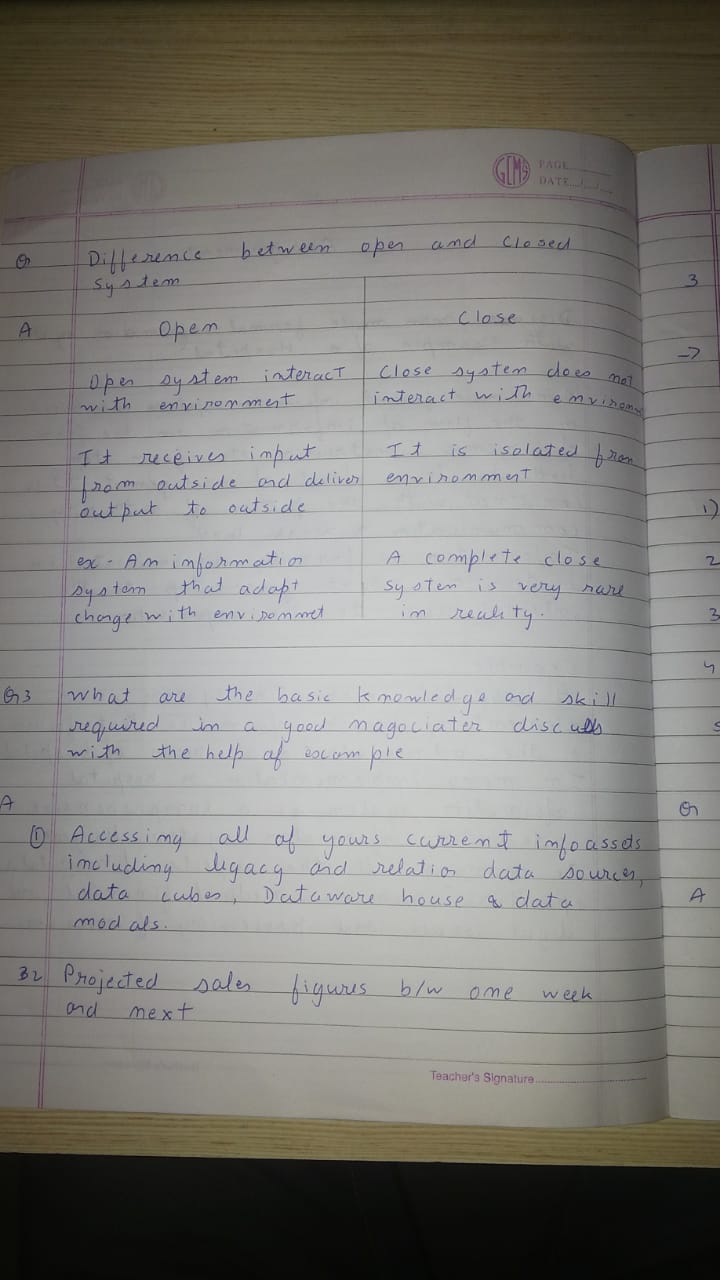 GEMS PAGE
DATE
Q Difference between open and closed
system
A Open Close
Open system interact
with environment
Close system does not
interact with environm
It receives input
from outside and deliver
output to outside
It is isolated from
environment
ex - An information
system that adapt
change with environmet
A complete close
system is very rare
in reality.
Q3 What are the basic knowledge and skill
required in a good nagociater discuss
with the help of example
A
① Accessing all of yours current info assets
including ligacy and relation data sources,
data cubes, Dataware house & data
modals.
32 Projected sales figures b/w one week
and next
Teacher's Signature
3
→
1)
2
3
4
5
Q
A